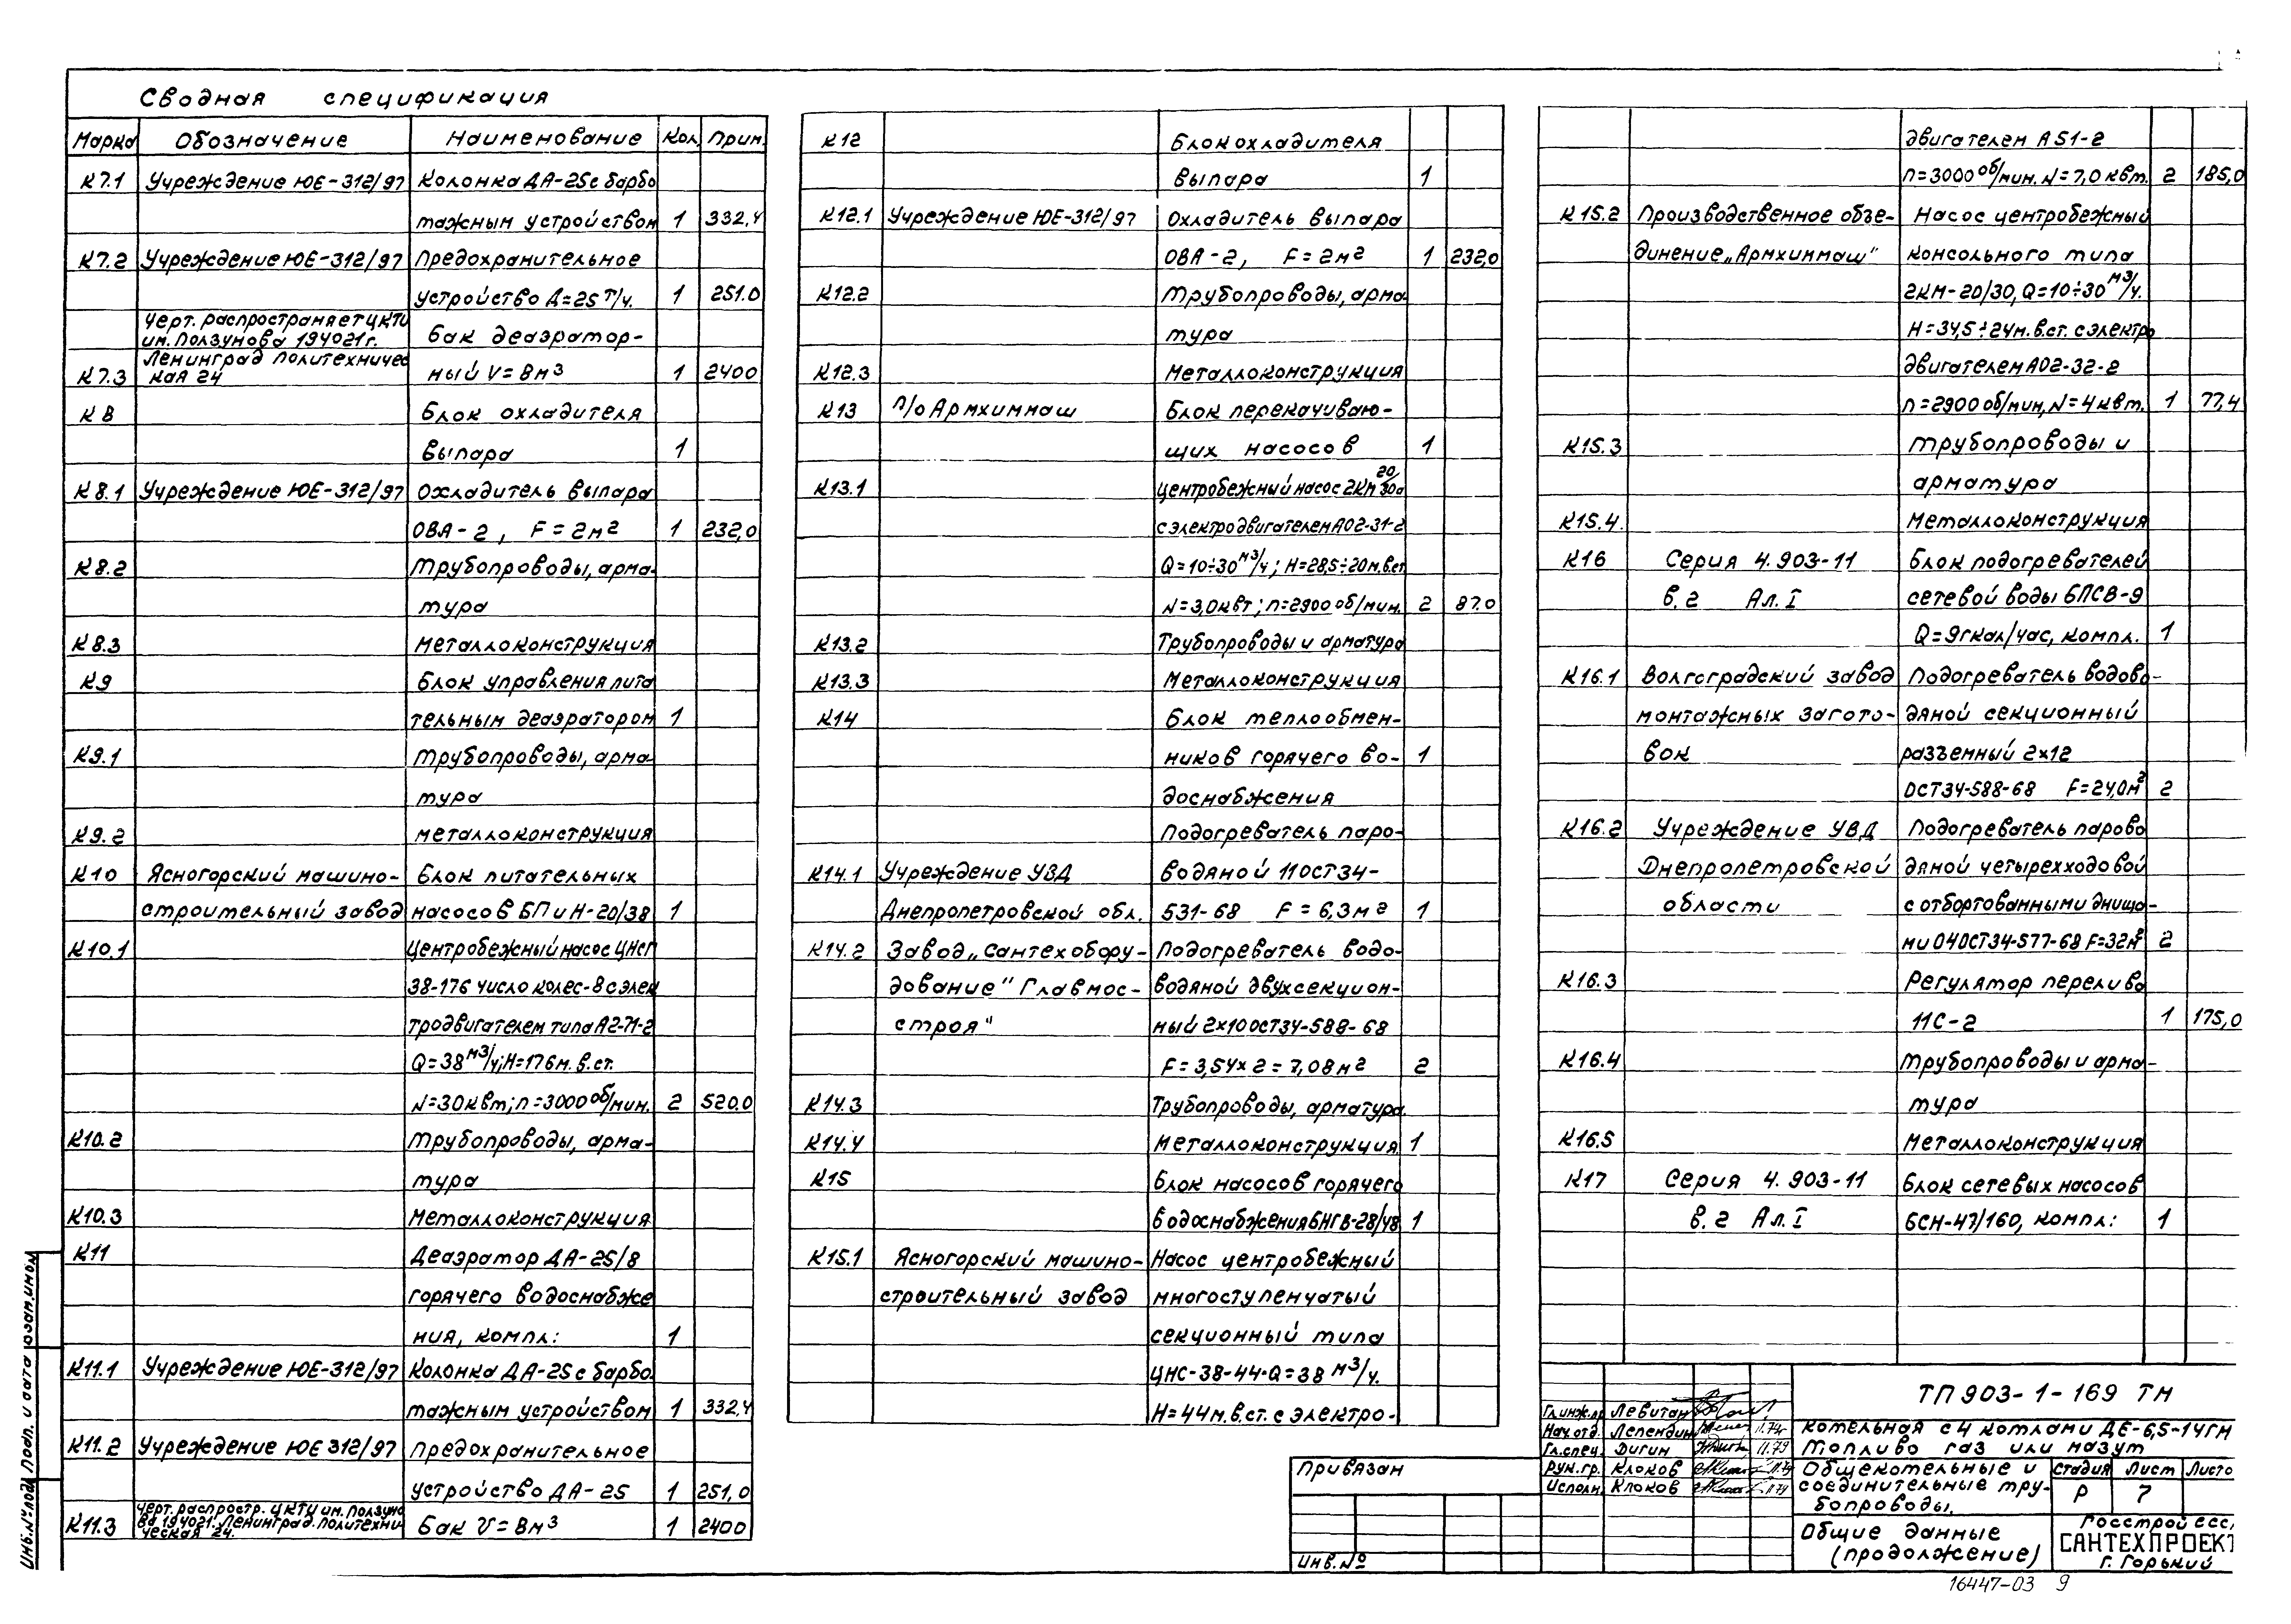 Сводная спецификация
Марка Обозначение Наименование Кол. Прим.
К7.1 Учреждение ЮЕ-312/97 Колонка ДА-25с барбо
тажным устройством 1 332,4
К7.2 Учреждение ЮЕ-312/97 Предохранительное
устройство Д=25 т/ч. 1 251.0
Черт. распространяет ЦКТИ
им. Ползунова 194021 г. Бак деаэратор-
Ленинград Политехничес
К7.3 кая 24 ный V=8м3 1 2400
К8 Блок охладителя
выпара 1
К8.1 Учреждение ЮЕ-312/97 Охладитель выпара
ОВА-2, F=2м2 1 232,0
К8.2 Трубопроводы, арма-
тура
К8.3 Металлоконструкция
К9 Блок управления пита
тельным деаэратором 1
К9.1 Трубопроводы, арма-
тура
К9.2 металлоконструкция
К10 Ясногорский машино- Блок питательных
строительный завод насосов БПиН-20/38 1
К10.1 Центробежный насос ЦНСГ
38-176 число колес-8 с элек
тродвигателем типа А2-71-2
Q=38 м3/ч; Н=176м. в. ст.
N=30квт; n=3000 об/мин. 2 520.0
К10.2 Трубопроводы, арма-
тура
К10.3 Металлоконструкция
К11 Деаэратор ДА-25/8
горячего водоснабже
ния, компл: 1
К11.1 Учреждение ЮЕ-312/97 Колонка ДА-25с барбо
тажным устройством 1 332,4
К11.2 Учреждение ЮЕ 312/97 Предохранительное
устройство ДА-25 1 251,0
Черт. распростр. ЦКТИ им. Ползуно
ва 194021. Ленинград. Политехни-
К11.3 ческая 24. Бак V=8м3 1 2400
К12 Блок охладителя
выпара 1
К12.1 Учреждение ЮЕ-312/97 Охладитель выпара
ОВА-2, F=2м2 1 232,0
К12.2 Трубопроводы, арма
тура
К12.3 Металлоконструкция
К13 П/О Армхиммаш Блок перекачиваю-
щих насосов 1
К13.1 Центробежный насос 2КМ 20/30а
с электродвигателем А02-31-2
Q=10÷30 м3/ч; Н=28,5÷20м.в.ст
N=3,0квт; n=2900 об/мин. 2 87.0
К13.2 Трубопроводы и арматура
К13.3 Металлоконструкция
К14 Блок теплообмен-
ников горячего во- 1
доснабжения
Подогреватель паро-
К14.1 Учреждение УВД водяной 11ОСТ34-
Днепропетровской обл. 531-68 F=6,3м2 1
К14.2 Завод „Сантехобору- Подогреватель водо-
дование" Главмос- водяной двухсекцион-
строя" ный 2х10ОСТ34-588-68
F=3,54х2=7,08м2 2
К14.3 Трубопроводы, арматура
К14.4 Металлоконструкция 1
К15 Блок насосов горячего
водоснабжения БНГВ-28/48 1
К15.1 Ясногорский машино- Насос центробежный
строительный завод многоступенчатый
секционный типа
ЦНС-38-44-Q=38 м3/ч.
Н=44м.в.ст. с электро-
двигателем А51-2
n=3000 об/мин. N=7,0квт. 2 185,0
К15.2 Производственное объе- Насос центробежный
динение „Армхиммаш" консольного типа
2КМ-20/30, Q=10÷30 м3/ч.
Н=34,5÷24м.в.ст. с электро
двигателем А02-32-2
n=2900 об/мин, N=4квт. 1 77,4
К15.3 Трубопроводы и
арматура
К15.4. Металлоконструкция
К16 Серия 4.903-11 Блок подогревателей
в.2 Ал.I сетевой воды БПСВ-9
Q=9гкал/час, компл. 1
К16.1 Волгоградский завод Подогреватель водово-
монтажных загото- дяной секционный
вок разъемный 2х12
ОСТ34-588-68 F=24,0м2 2
К16.2 Учреждение УВД Подогреватель парово
Днепропетровской дяной четырехходовой
области с отбортованными днища-
ми 04ОСТ34-577-68 F=32м2 2
К16.3 Регулятор перелива
11С-2 1 175,0
К16.4 Трубопроводы и арма-
тура
К16.5 Металлоконструкция
К17 Серия 4.903-11 Блок сетевых насосов
в.2 Ал.I БСН-47/160, компл: 1
ТП 903-1-169 ТМ
Гл.инж.пр. Левитан
Нач.отд. Лепендин 11.79г
Гл.спец. Дигин 11.79
Рук.гр. Клоков 11.79
Исполн. Клоков 11.79
Котельная с 4 котлами ДЕ-6,5-14ГМ
Топливо газ или мазут
Общекотельные и
соединительные тру-
бопроводы.
Стадия Лист Листо
Р 7
Общие данные
(продолжение)
Госстрой СССР
САНТЕХПРОЕКТ
г. Горький
Привязан
Инв.№
Инв.№подл. Подп. и дата Взам.инв.№
16447-03 9